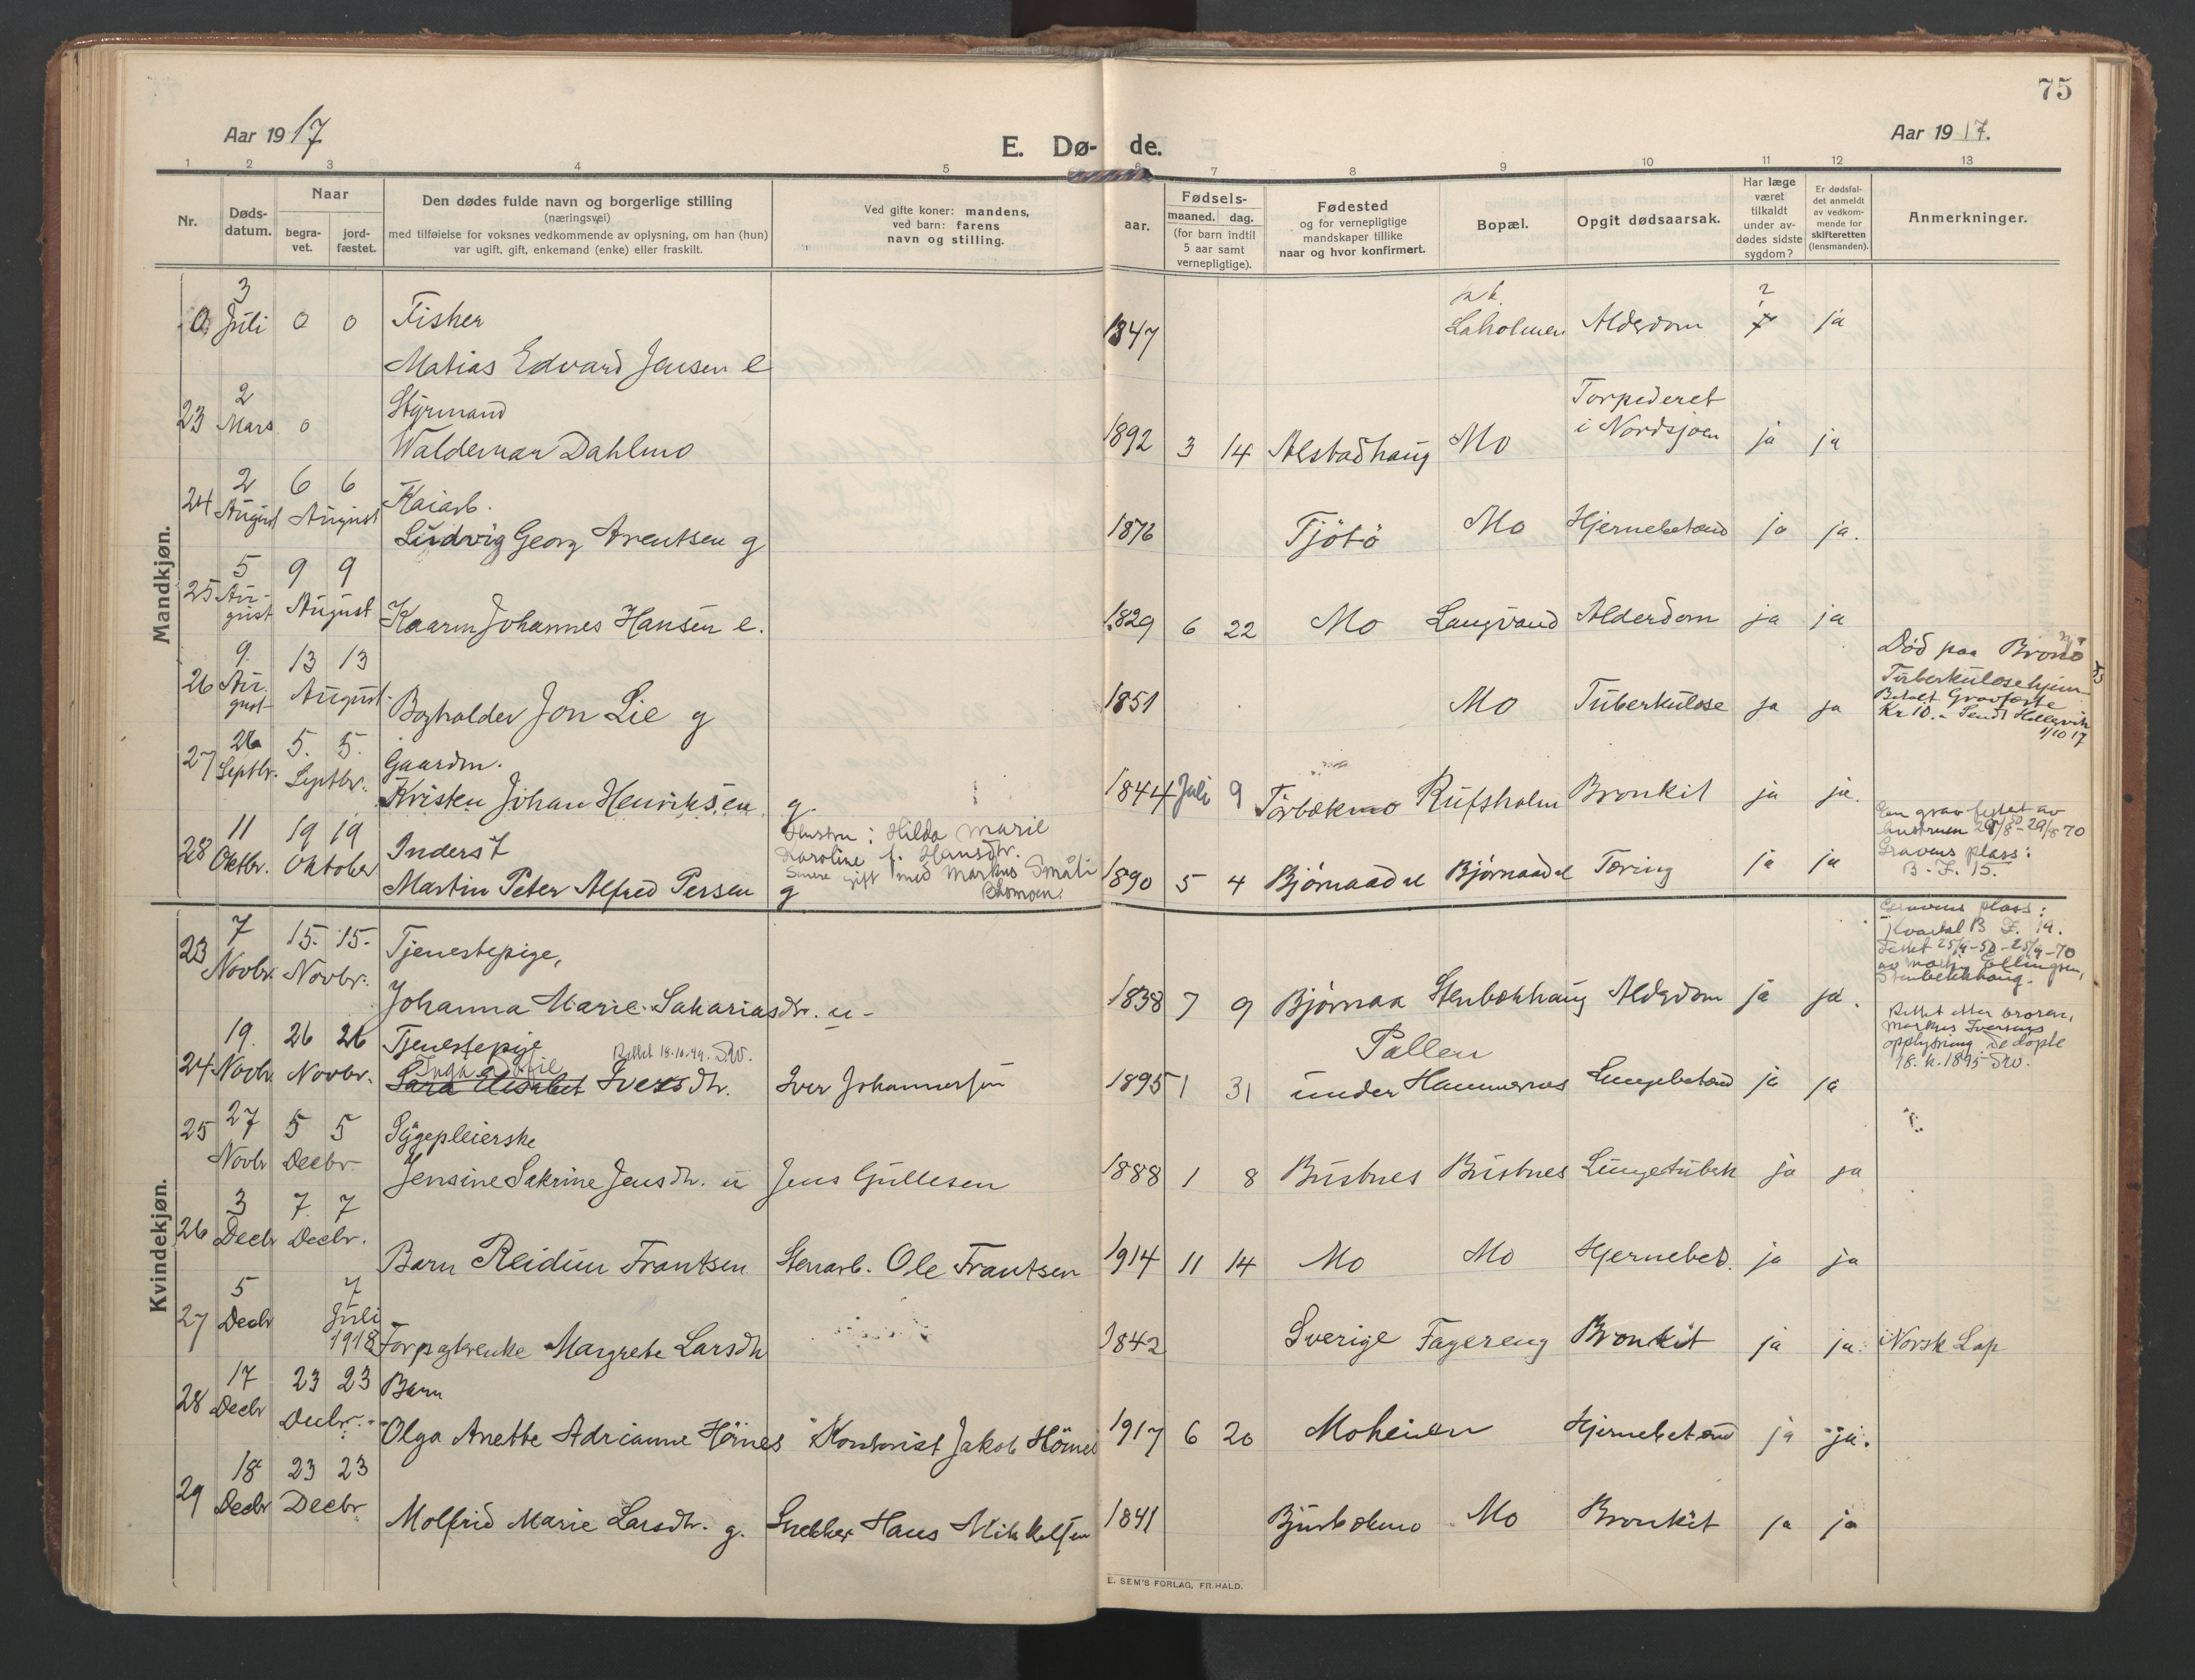 75
Aar 1917
E. Dø- de.
Aar 1917.
1 2 3 4 5 6 7 8 9 10 11 12 13
Nr.
Døds-
datum.
Naar
begra-
vet.
jord-
fæstet.
Den dødes fulde navn og borgerlige stilling
(næringsvei)
med tilføielse for voksnes vedkommende av oplysning, om han (hun)
var ugift, gift, enkemand (enke) eller fraskilt.
Ved gifte koner: mandens,
ved barn: farens
navn og stilling.
aar.
Fødsels-
maaned. dag.
(for barn indtil
5 aar samt
vernepligtige).
Fødested
og for vernepligtige
mandskaper tillike
naar og hvor konfirmert.
Bopæl.
Opgit dødsaarsak.
Har læge
været
tilkaldt
under av-
dødes sidste
sygdom?
Er dødsfal-
det anmeldt
av vedkom-
mende for
skifteretten
(lensmanden).
Anmerkninger.
Mandkjøn.
0 3 Juli 0 0 Fisker
Matias Edvard Jensen e 1847 Laholmen Alderdom ? ja
23 2 Mars 0 Styrmand
Waldemar Dahlmo 1892 3 14 Alstadhaug Mo Torpederet
i Nordsjøen ja ja
24 2 August 6 6 August Kaiarb.
Ludvig Georg Arentsen g 1876 Tjötö Mo Hjernebetænd ja ja.
25 5 August 9 9 August
Kaarin Johannes Hansen e. 1829 6 22 Mo Langvand Alderdom ja ja
26 9. August 13 13 August
Bogholder Jon Lie g 1851 Mo Tuberkulose ja ja
Död paa Brønö
Tuberkulosehjem
Betalt Gravfæste
Kr 10.- Sendt
1/10 17
27 26 Septbr. 5. 5. Septbr. Gaardm.
Kristen Johan Henriksen g 1844 Juli 9 Rufsholm Bronkit ja ja.
28 11 Oktbr. 19 19 Oktober Inderst
Martin Peter Alfred Persen g
Hustru: Hilda Marie
Karoline f. Hansdtr.
Senere gift med Markus Småli
1890 5 4 Bjørnaadal Bjørnaadal Tæring ja ja
Een grav festet av
hustruen 29/8-50-29/8 70
Gravens plass:
B. F. 15.
Kvindekjøn.
23 7 Novbr. 15. 15. Novbr. Tjenestepige,
Johanna Marie Sakariasdtr. u- 1838 7 9 Bjørnaa Stenbækhaug Alderdom ja ja.
Gravens plass:
Kvartal B F. 19.
Festet 25/9-50-25/9-70
av Ellingsen,
Stenbekkhaug.
24 19. Novbr 26 26 Novbr. Tjenestepige
Inga Sofie
Rettet 18.10.49.
Sara Elisabet Iversdtr. Iver Johannessen 1895 1 31 Pallen
under Hammernes Lungebetænd ja ja
Rettet etter broren,
Markus Iversens
opplysning. Se döpte
18. 1895
25 27 Novbr 5 5 Decbr. Sygepleierske
Jensine Sakrine Jensdtr. u Jens Gullesen 1888 1 8 Busbnes Busbnes Lungetuberk ja ja
26 3 Decbr 7. 7 Decbr.
Barn Reidun Frantsen Stenarb. Ole Frantsen 1914 11 14 Mo Mo Hjernebet. ja ja
27 5 Decbr 7 Juli
1918 Forpgtenke Margrete Larsdtr 1842 Sverige Fagereng Bronkit ja ja. Norsk Lap
28 17 Decbr 23 23 Decbr. Barn
Olga Anette Adrianne Hörnes Kontorist Jakob Hörnes 1917 6 20 Moheien Hjernebetænd ja ja.
29 18 Decbr 23 23 Decbr
Molfrid Marie Larsdtr. g. Snekker Hans Mikkelsen 1841 Mo Bronkit ja ja
E. SEM'S FORLAG, FR.HALD.